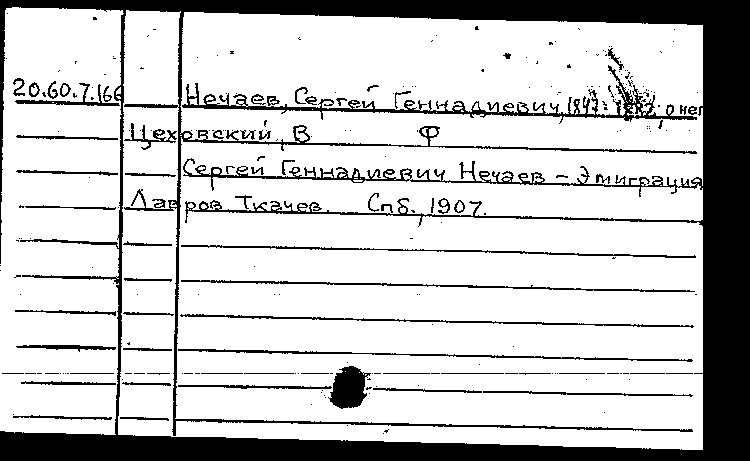 20.60.7.166 Нечаев, Сергей Геннадиевич, 1847-1882, о нем
Цеховский, В Ф
Сергей Геннадиевич Нечаев – Эмиграция
Лавров Ткачев. Спб., 1907.